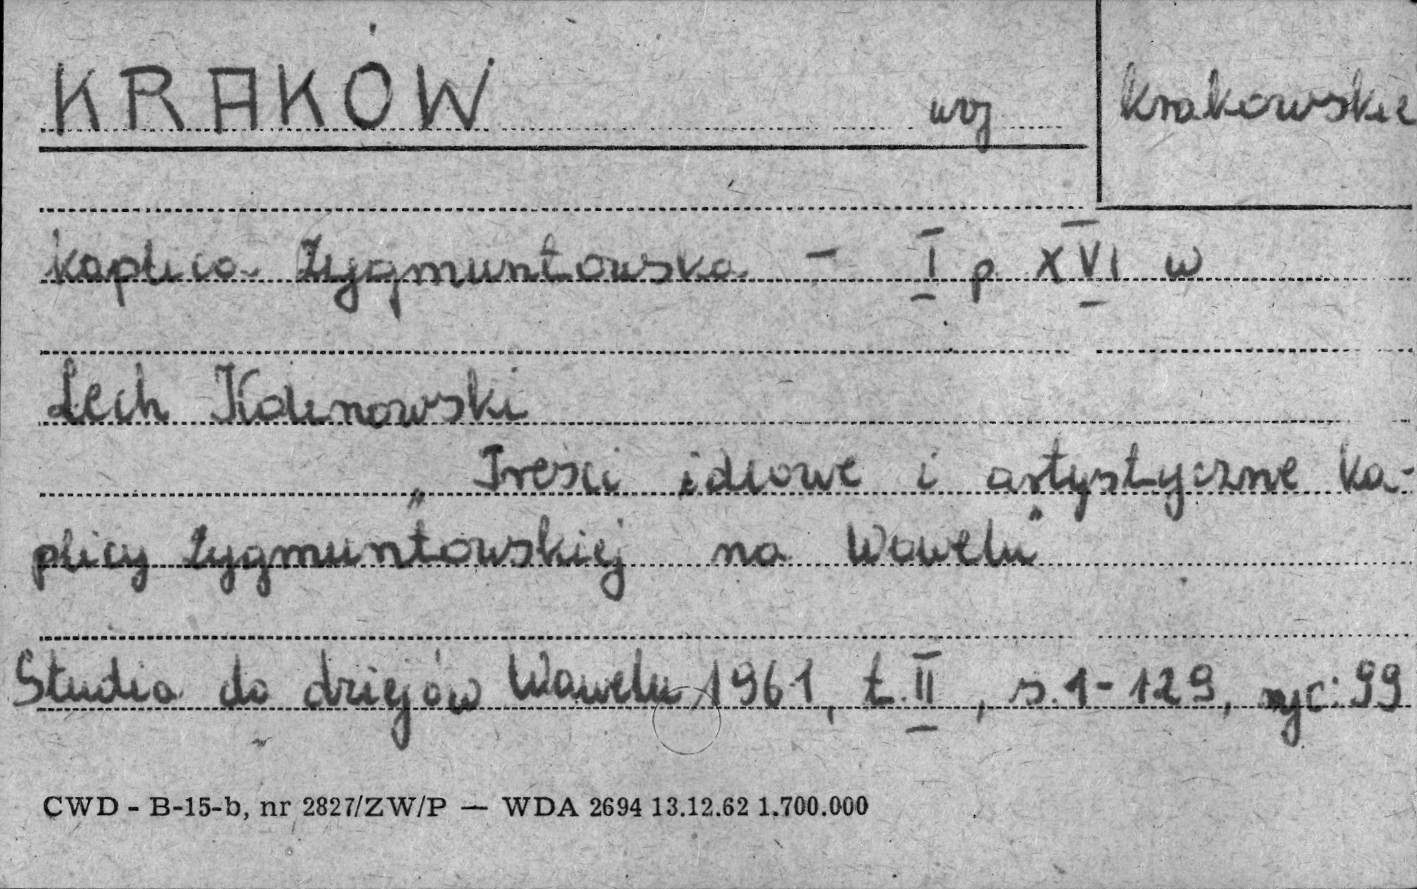 KRAKÓW woj krakowskie
kaplica Zygmuntowska – I p XVI w
Lech Kalinowski
„Treści ideowe i artystyczne ka-
plicy Zygmuntowskiej na Wawelu"
Studia do dziejów Wawelu 1961, t. II, s. 1-129, ryc: 99
CWD - B-15-b, nr 2827/ZW/P — WDA 2694 13.12.62 1.700.000